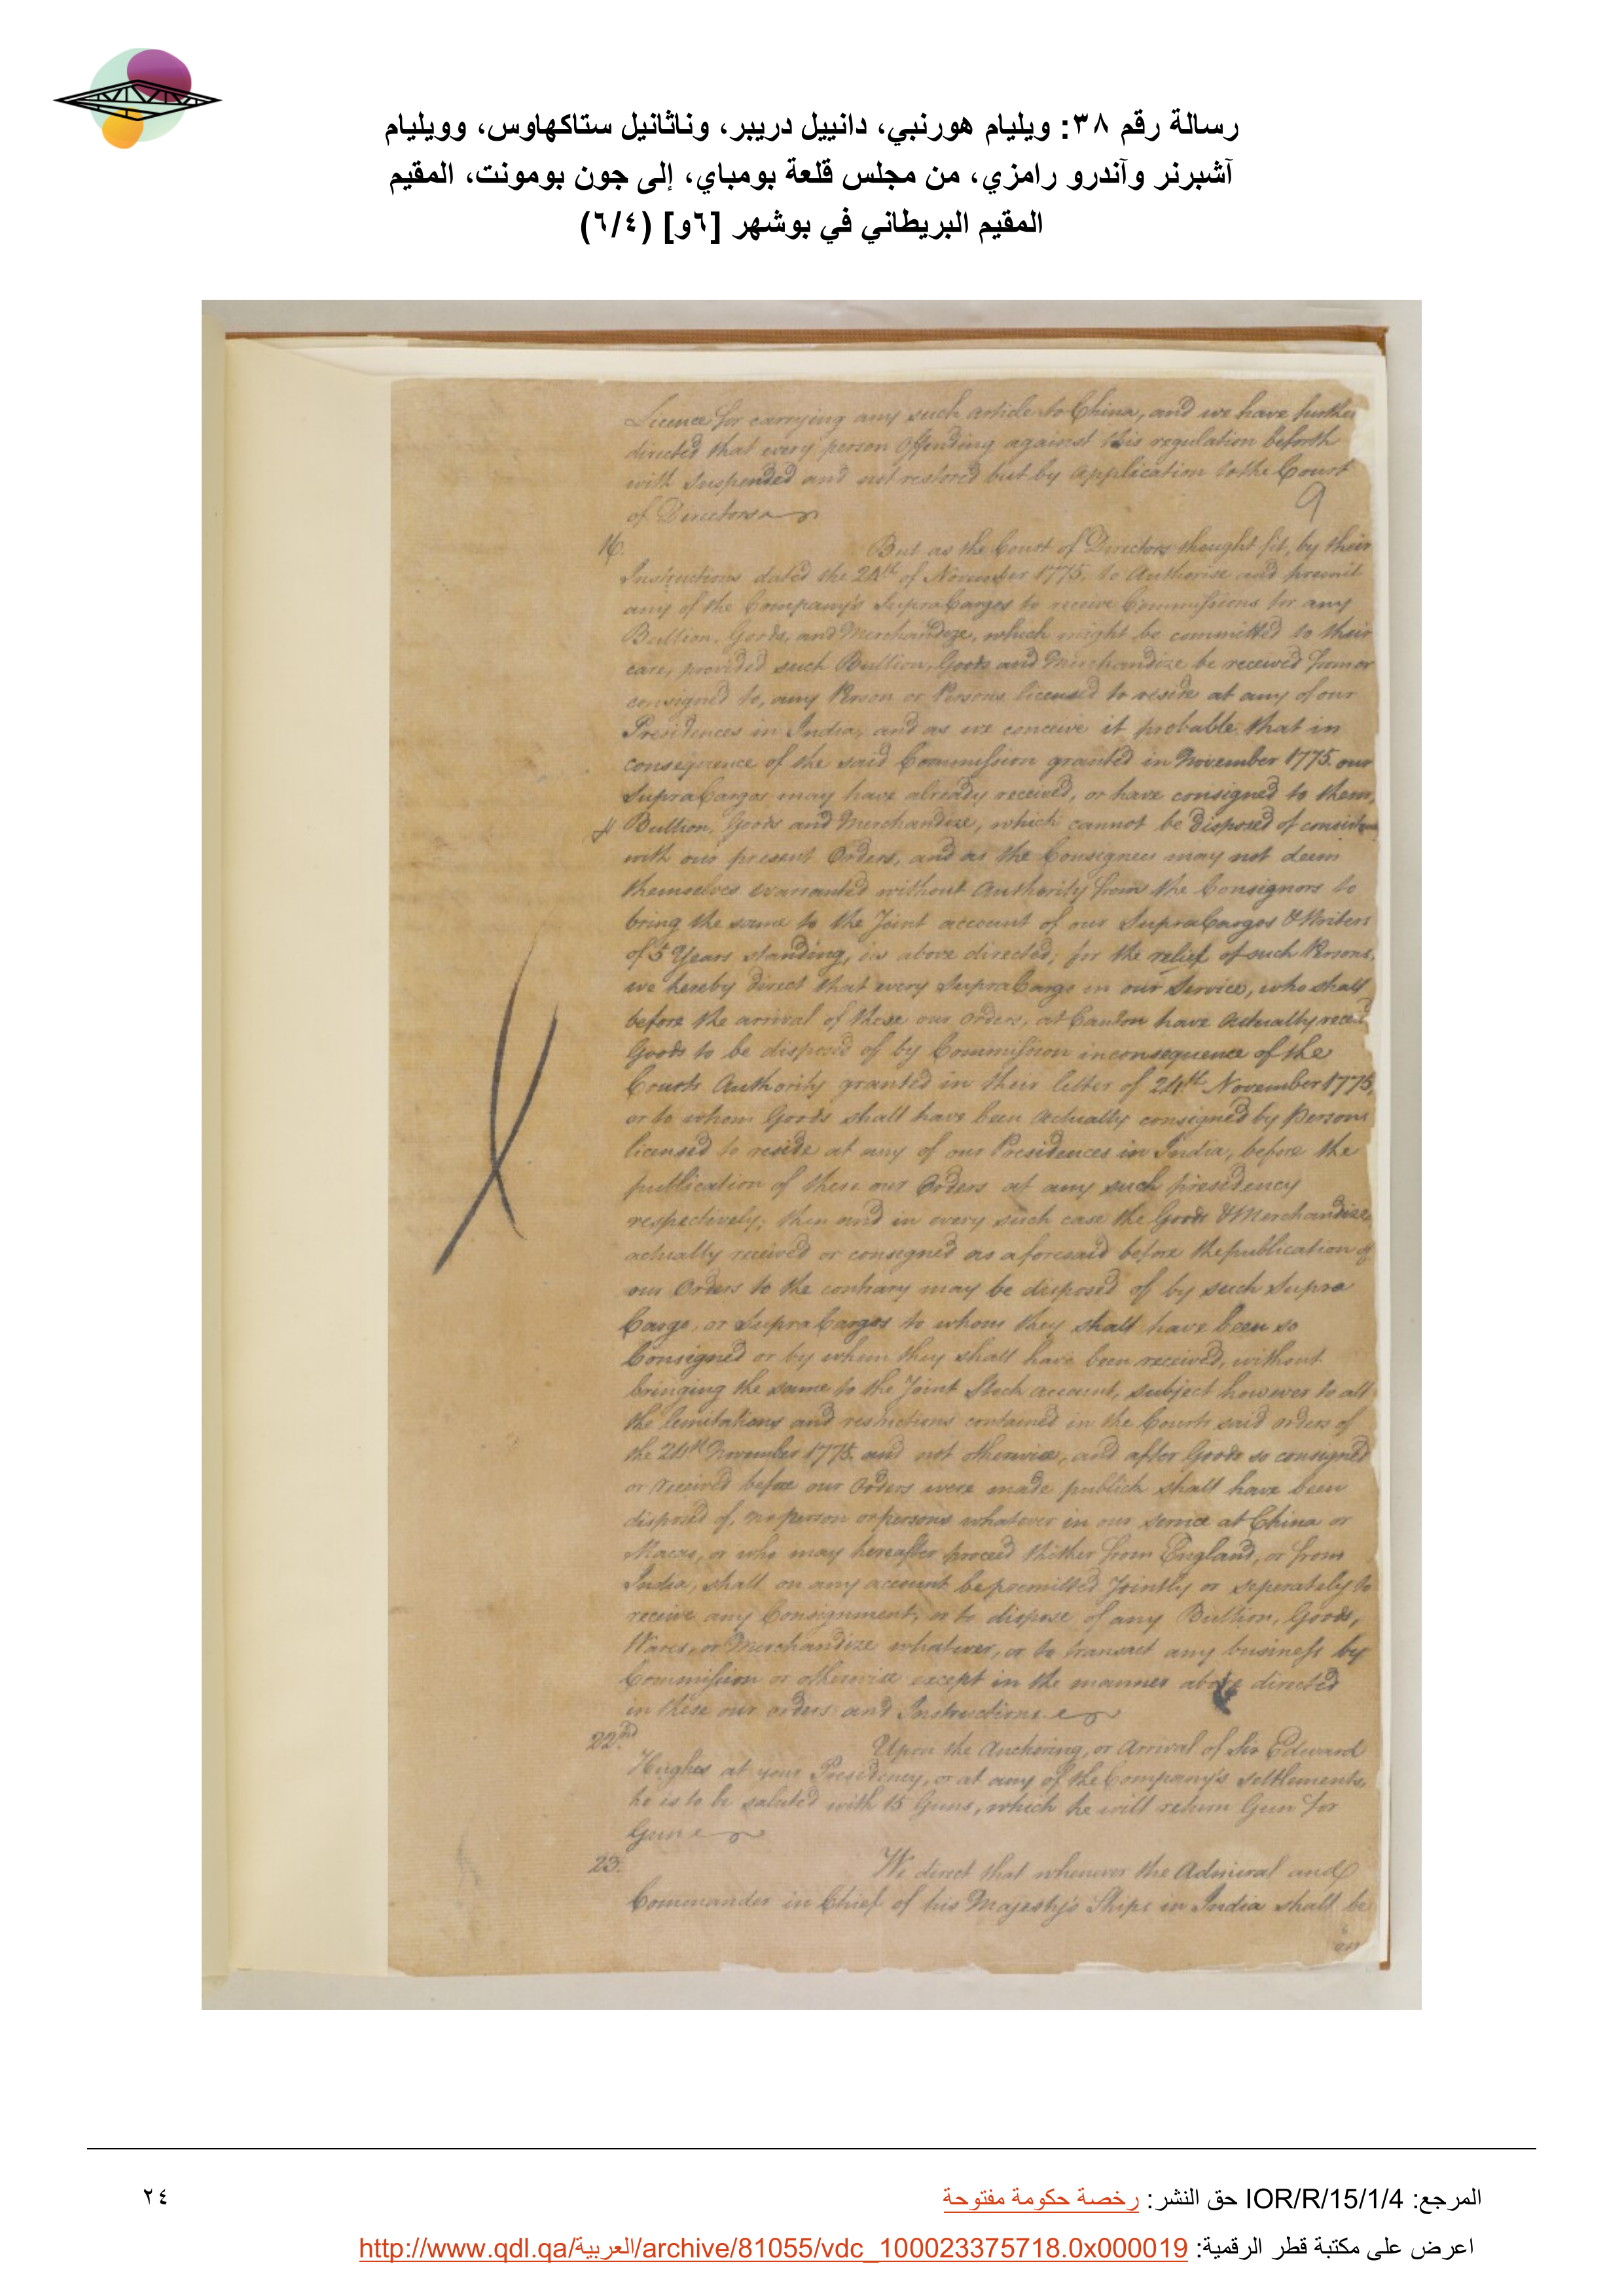 رسالة رقم ٣٨: ويليام هورنبي، دانييل دريبر، وناثانيل ستاكهاوس، وويليام
آشبرنر وآندرو رامزي، من مجلس قلعة بومباي، إلى جون بومونت، المقيم
المقيم البريطاني في بوشهر [٦و] (٦/٤)
Licence for carrying any such article to China, and we have further
directed that every person Offending against this regulation beforth
with Suspended and not restored but by Application to the Court
9
of Directors
16. But as the Court of Directors thought fit, by their
Instructions dated the 24th of November 1775, to Authorise and permit
any of the Company's SupraCargos to receive Commissions for any
Bullion, Goods, and Merchandize, which might be committed to their
care, provided such Bullion, Goods and Merchandize be received from or
consigned to, any Person or Persons licensed to reside at any of our
Presidences in India, and as we conceive it probable that in
consequence of the said Commission granted in November 1775 our
SupraCargos may have already received, or have consigned to them,
Bullion, Goods and Merchandize, which cannot be disposed of
with our present Orders, and as the Consignees may not deem
themselves warranted without Authority from the Consignors to
bring the same to the Joint account of our SupraCargos & Writers
of 5 Years standing, as above directed; for the relief of such Persons,
we hereby direct that every SupraCargo in our Service, who shall
before the arrival of these our Orders, at Canton have Actually reced
Goods to be disposed of by Commission in consequence of the
Courts Authority granted in their letter of 24th November 1775,
or to whom Goods shall have been Actually consigned by Persons
licensed to reside at any of our Presidences in India, before the
publication of these our Orders at any such presidency
respectively; then and in every such case the Goods & Merchandize
actually received or consigned as aforesaid before the publication of
our Orders to the contrary may be disposed of by such Supra
Cargo, or SupraCargos to whom they shall have been so
Consigned or by whom they shall have been received, without
bringing the same to the Joint Stock account, subject however to all
the limitations and restrictions contained in the Courts said orders of
the 24th November 1775 and not otherwise, and after Goods so consigned
or received before our Orders were made publick shall have been
disposed of, no person or persons whatever in our service at China or
Macao, or who may hereafter proceed thither from England, or from
India, shall on any account be permitted Jointly or seperately to
receive any Consignment, or to dispose of any Bullion, Goods,
Wares, or Merchandize whatever, or to transact any business by
Commission or otherwise except in the manner above directed
in these our orders and Instructions
22nd Upon the Anchoring, or Arrival of Sir Edward
Hughes at your Presidency, or at any of the Company's settlements,
he is to be saluted with 15 Guns, which he will return Gun for
Gun
23. We direct that whenever the Admiral and
Commander in Chief of his Majesty's Ships in India shall be
المرجع: IOR/R/15/1/4 حق النشر: رخصة حكومة مفتوحة
٢٤
اعرض على مكتبة قطر الرقمية: http://www.qdl.qa/العربية/archive/81055/vdc_100023375718.0x000019